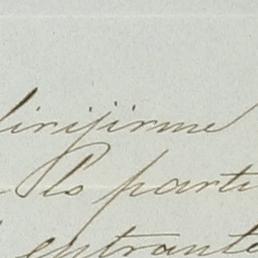 dirijirme
Lo parti
entrante